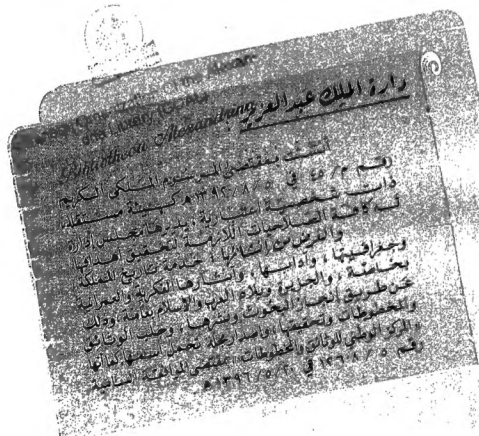 General Organization Of the Alexan-
dria Library (GOAL)
Bibliotheca Alexandrina
دارة الملك عبد العزيز
أنشئت بمقتضى المرسوم الملكي الكريم
رقم م/٤٥ في ٥/٨/١٣٩٢هـ كهيئة مستقلة
ذات شخصية اعتبارية ويديرها مجلس إدارة
له كافة الصلاحيات اللازمة لتحقيق أهدافها
والغرض من إنشائها: خدمة تاريخ المملكة
وجغرافيتها، وآدابها، وآثارها الفكرية والعمرانية
بخاصة، والجزيرة وبلاد العرب والإسلام بعامة، وذلك
عن طريق إنجاز البحوث ونشرها، وجلب الوثائق
والمخطوطات وتحقيقها، وإصدار مجلة تحمل اسمها
والمركز الوطني للوثائق والمخطوطات بمقتضى الموافقة السامية
رقم ٥/٨/١٢٦ في ٢١/٥/١٣٩٦هـ